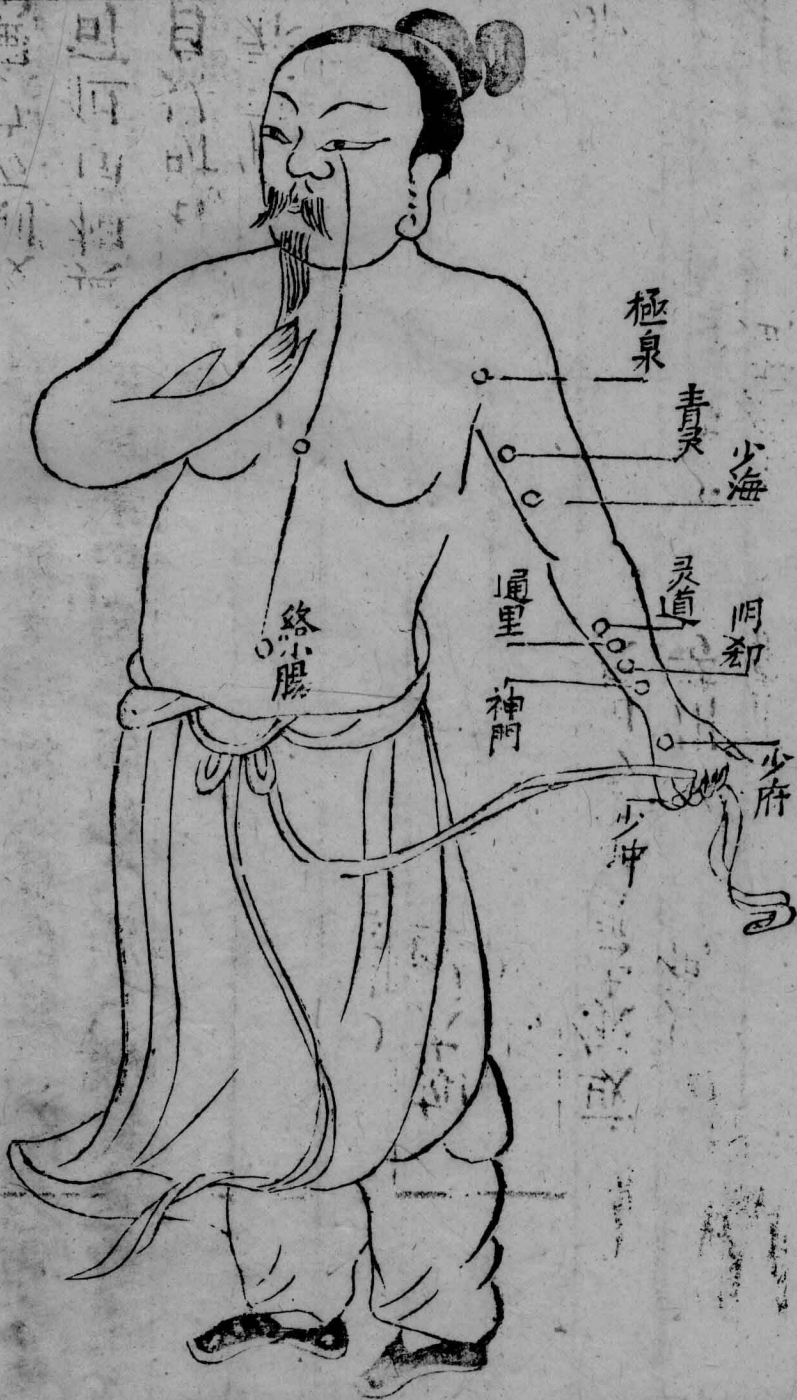 極泉
青灵
少海
灵道
通里
阴郄
神門
少府
少冲
絡小腸